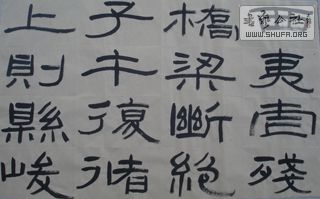 夷虐殘
橋梁斷絕
子午復循
上則縣峻
WWW.SHUFA.ORG